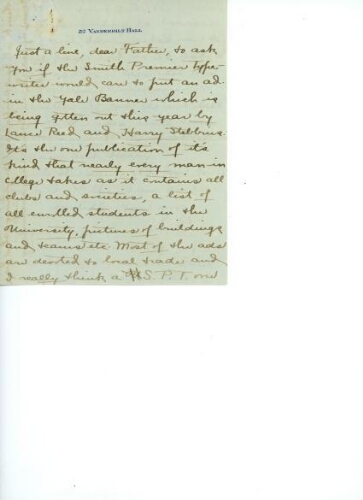 20 Vanderbilt Hall
Just a line, dear Father, to ask
you if the Smith Premier type
writer would care to put an ad.
in the Yale Banner which is
being gotten out this year by
Lance Reed and Harry Stebbins.
It's the one publication of its
kind that nearly every man in
college takes as it contains all
clubs and societies, a list of
all enrolled students in the
University, pictures of buildings
and teams etc. Most of the ads
are devoted to local trade and
I really think a S. P. T. one